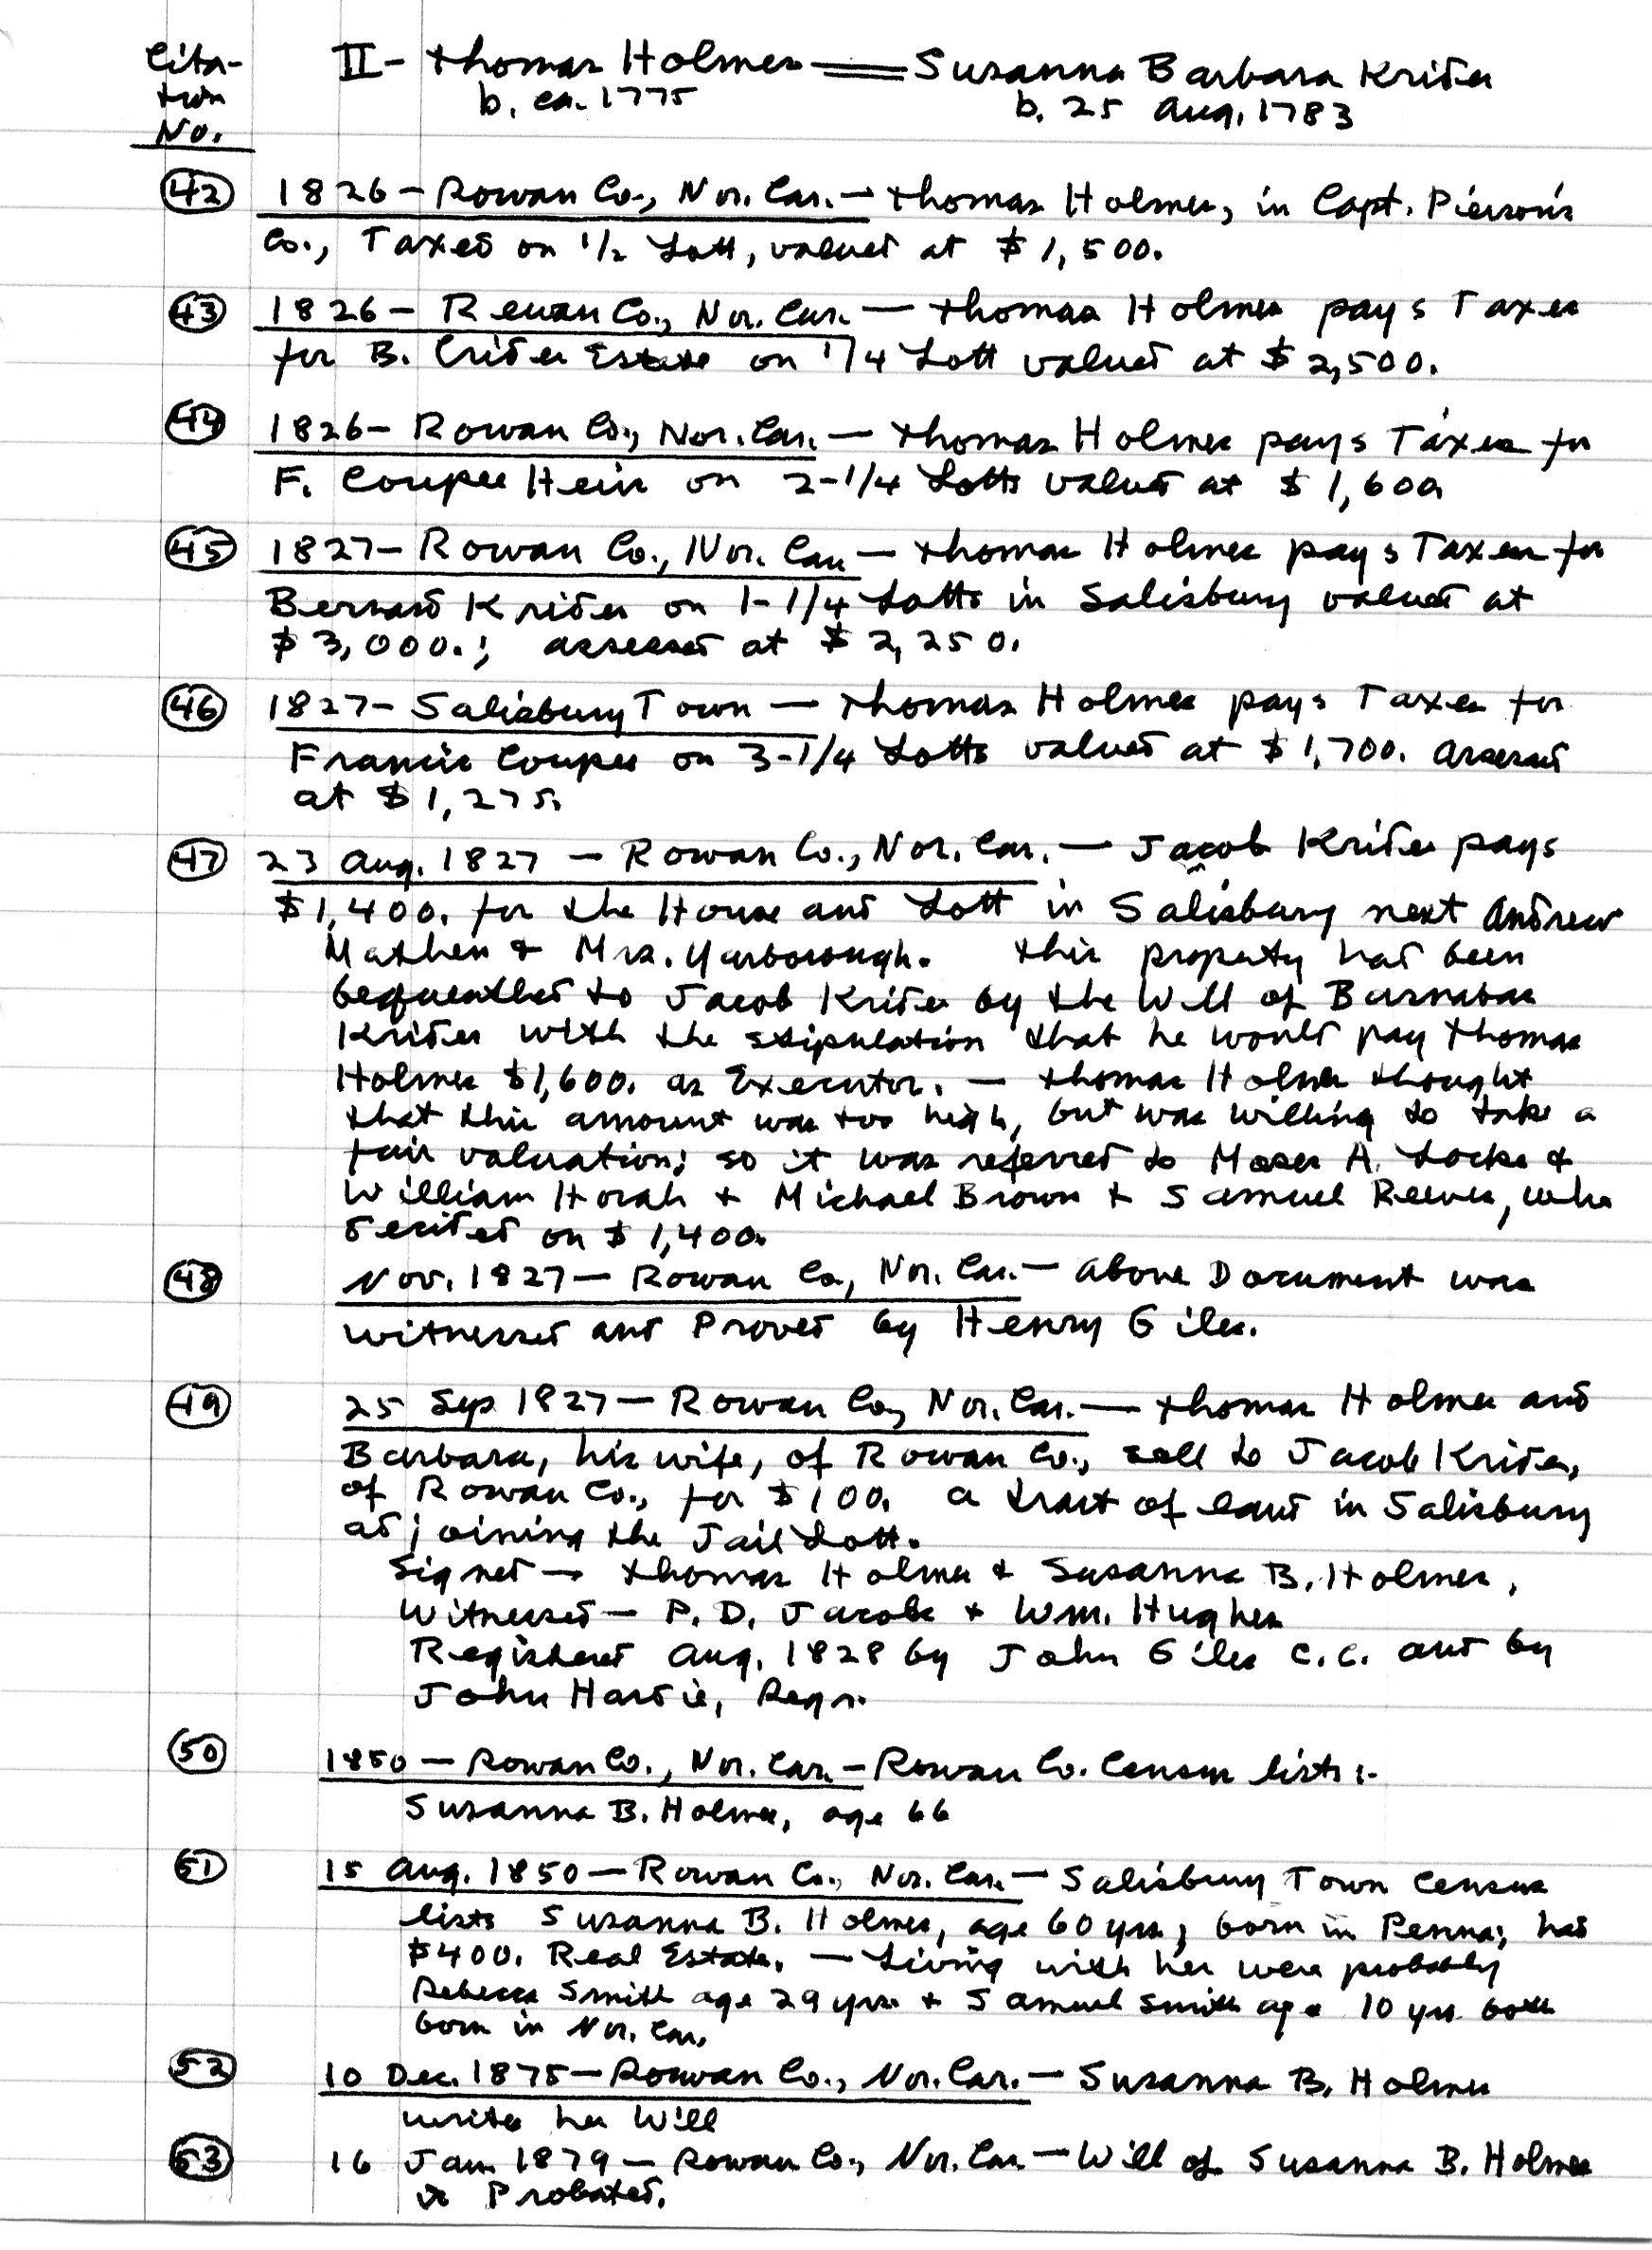 Cita- II - Thomas Holmes == Susanna Barbara Krider
tion b. ca. 1775 b. 25 Aug. 1783
No.
(42) 1826 - Rowan Co., Nor. Car. - Thomas Holmes, in Capt. Pierson's
Co., Taxed on 1/2 Lott, valued at $1,500.
(43) 1826 - Rowan Co., Nor. Car. - Thomas Holmes pays Taxes
for B. Crider Estate on 1/4 Lott valued at $2,500.
(44) 1826 - Rowan Co., Nor. Car. - Thomas Holmes pays Taxes for
F. Coupee Heirs on 2-1/4 Lotts valued at $1,600.
(45) 1827 - Rowan Co., Nor. Car. - Thomas Holmes pays Taxes for
Bernard Krider on 1-1/4 Lotts in Salisbury valued at
$3,000.; assessed at $2,250.
(46) 1827 - Salisbury Town - Thomas Holmes pays Taxes for
Francis Coupee on 3-1/4 Lotts valued at $1,700. assessed
at $1,275.
(47) 23 Aug. 1827 - Rowan Co., Nor. Car. - Jacob Krider pays
$1,400. for the House and Lott in Salisbury next Andrew
Mathen & Mrs. Yarborough. This property had been
bequeathed to Jacob Krider by the Will of Barnabas
Krider with the stipulation that he would pay Thomas
Holmes $1,600. as Executor. - Thomas Holmes thought
that this amount was too high, but was willing to take a
fair valuation; so it was referred to Moses A. Locke &
William Horah & Michael Brown & Samuel Reeves, who
decided on $1,400.
(48) Nov. 1827 - Rowan Co., Nor. Car. - Above Document was
witnessed and Proved by Henry Giles.
(49) 25 Sep 1827 - Rowan Co., Nor. Car. - Thomas Holmes and
Barbara, his wife, of Rowan Co., sell to Jacob Krider,
of Rowan Co., for $100. a tract of land in Salisbury
adjoining the Jail Lott.
Signed - Thomas Holmes & Susanna B. Holmes,
Witnessed - P. D. Jacobs & Wm. Hughes
Registered Aug. 1828 by John Giles C.C. and by
John Hardie, Regr.
(50) 1850 - Rowan Co., Nor. Car. - Rowan Co. Census lists:-
Susanna B. Holmes, age 66
(51) 15 Aug. 1850 - Rowan Co., Nor. Car. - Salisbury Town Census
lists Susanna B. Holmes, age 60 yrs; born in Penna; has
$400. Real Estate. - Living with her were probably
Rebecca Smith age 29 yrs & Samuel Smith age 10 yrs. both
born in Nor. Car.
(52) 10 Dec. 1875 - Rowan Co., Nor. Car. - Susanna B. Holmes
writes her Will
(53) 16 Jan 1879 - Rowan Co., Nor. Car. - Will of Susanna B. Holmes
is Probated.